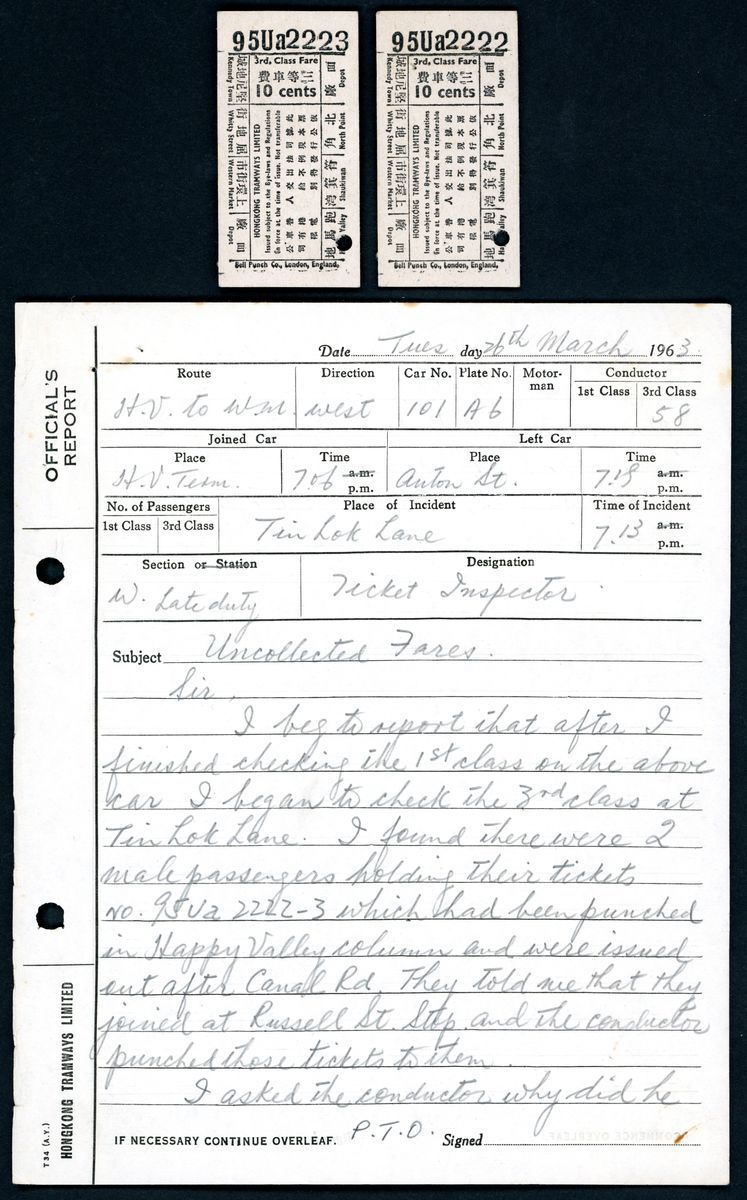 95Ua2223
3rd. Class Fare
費車等三
10 cents
城地尼堅
Kennedy Town
街地屈
Whitty Street
市街環上
Western Market
廠
Depot
HONGKONG TRAMWAYS LIMITED
Issued subject to the Bye-laws and Regulations
in force at the time of issue. Not transferable
廠
Depot
角北
North Point
灣箕筲
Shaukiwan
地馬跑
Valley
Bell Punch Co., London, England,
95Ua2222
3rd. Class Fare
費車等三
10 cents
城地尼堅
Kennedy Town
街地屈
Whitty Street
市街環上
Western Market
廠
Depot
HONGKONG TRAMWAYS LIMITED
Issued subject to the Bye-laws and Regulations
in force at the time of issue. Not transferable
廠
Depot
角北
North Point
灣箕筲
Shaukiwan
地馬跑
Valley
Bell Punch Co., London, England,
OFFICIAL'S
REPORT
Date Tues day 26th March 1963.
Route Direction Car No. Plate No. Motor-man Conductor
1st Class 3rd Class
H.V. to W.M. west 101 A6 58
Joined Car Left Car
Place Time Place Time
H.V. Term. 7.06 a.m. p.m. Anton St. 7.15 a.m. p.m.
No. of Passengers Place of Incident Time of Incident
1st Class 3rd Class Tin Lok Lane 7.13 a.m. p.m.
Section or Station Designation
W. Late duty Ticket Inspector.
Subject Uncollected Fares.
Sir,
I beg to report that after I
finished checking the 1st class on the above
car I began to check the 3rd class at
Tin Lok Lane. I found there were 2
male passengers holding their tickets
no. 95Ua 2222-3 which had been punched
in Happy Valley column and were issued
out after Canal Rd. They told me that they
joined at Russell St. Stop and the conductor
punched those tickets to them.
I asked the conductor why did he
IF NECESSARY CONTINUE OVERLEAF. P.T.O. Signed
T 34 (A.Y.)
HONGKONG TRAMWAYS LIMITED